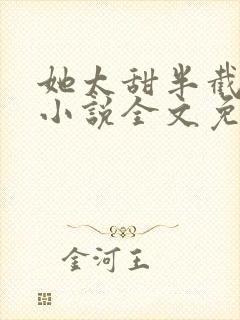 她太甜半截
小說全文免
金河王